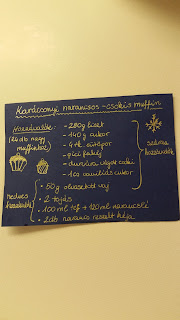 Karácsonyi narancsos-csokis muffin
Hozzávalók:
(24 db nagy
muffinhoz)
- 280g liszt
- 140g cukor
- 4 tk sütőpor
- pici fahéj
- durvára vágott csoki
- 1cs vaníliás cukor
száraz
hozzávalók
nedves
hozzávalók
• 50g olvasztott vaj
• 2 tojás
• 100ml tej + 120ml narancslé
• 2db narancs reszelt héja